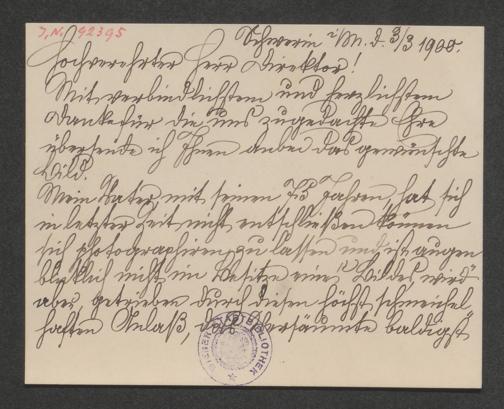 J.N. 92395
Schwerin i/M. d. 3/3 1900.
Hochverehrter Herr Direktor!
Mit verbindlichstem und herzlichstem
Danke für die uns zugedachte Ehre
übersende ich Ihnen anbei das gewünschte
Bild.
Mein Vater, mit seinen 73 Jahren, hat sich
in letzter Zeit nicht entschließen können
sich photographiren zu lassen und ist augen
blicklich nicht im Besitze eines Bildes, wird
aber, getrieben durch diesen höchst schmeichel
haften Anlaß, das Versäumte baldigst
WIENER STADTBIBLIOTHEK